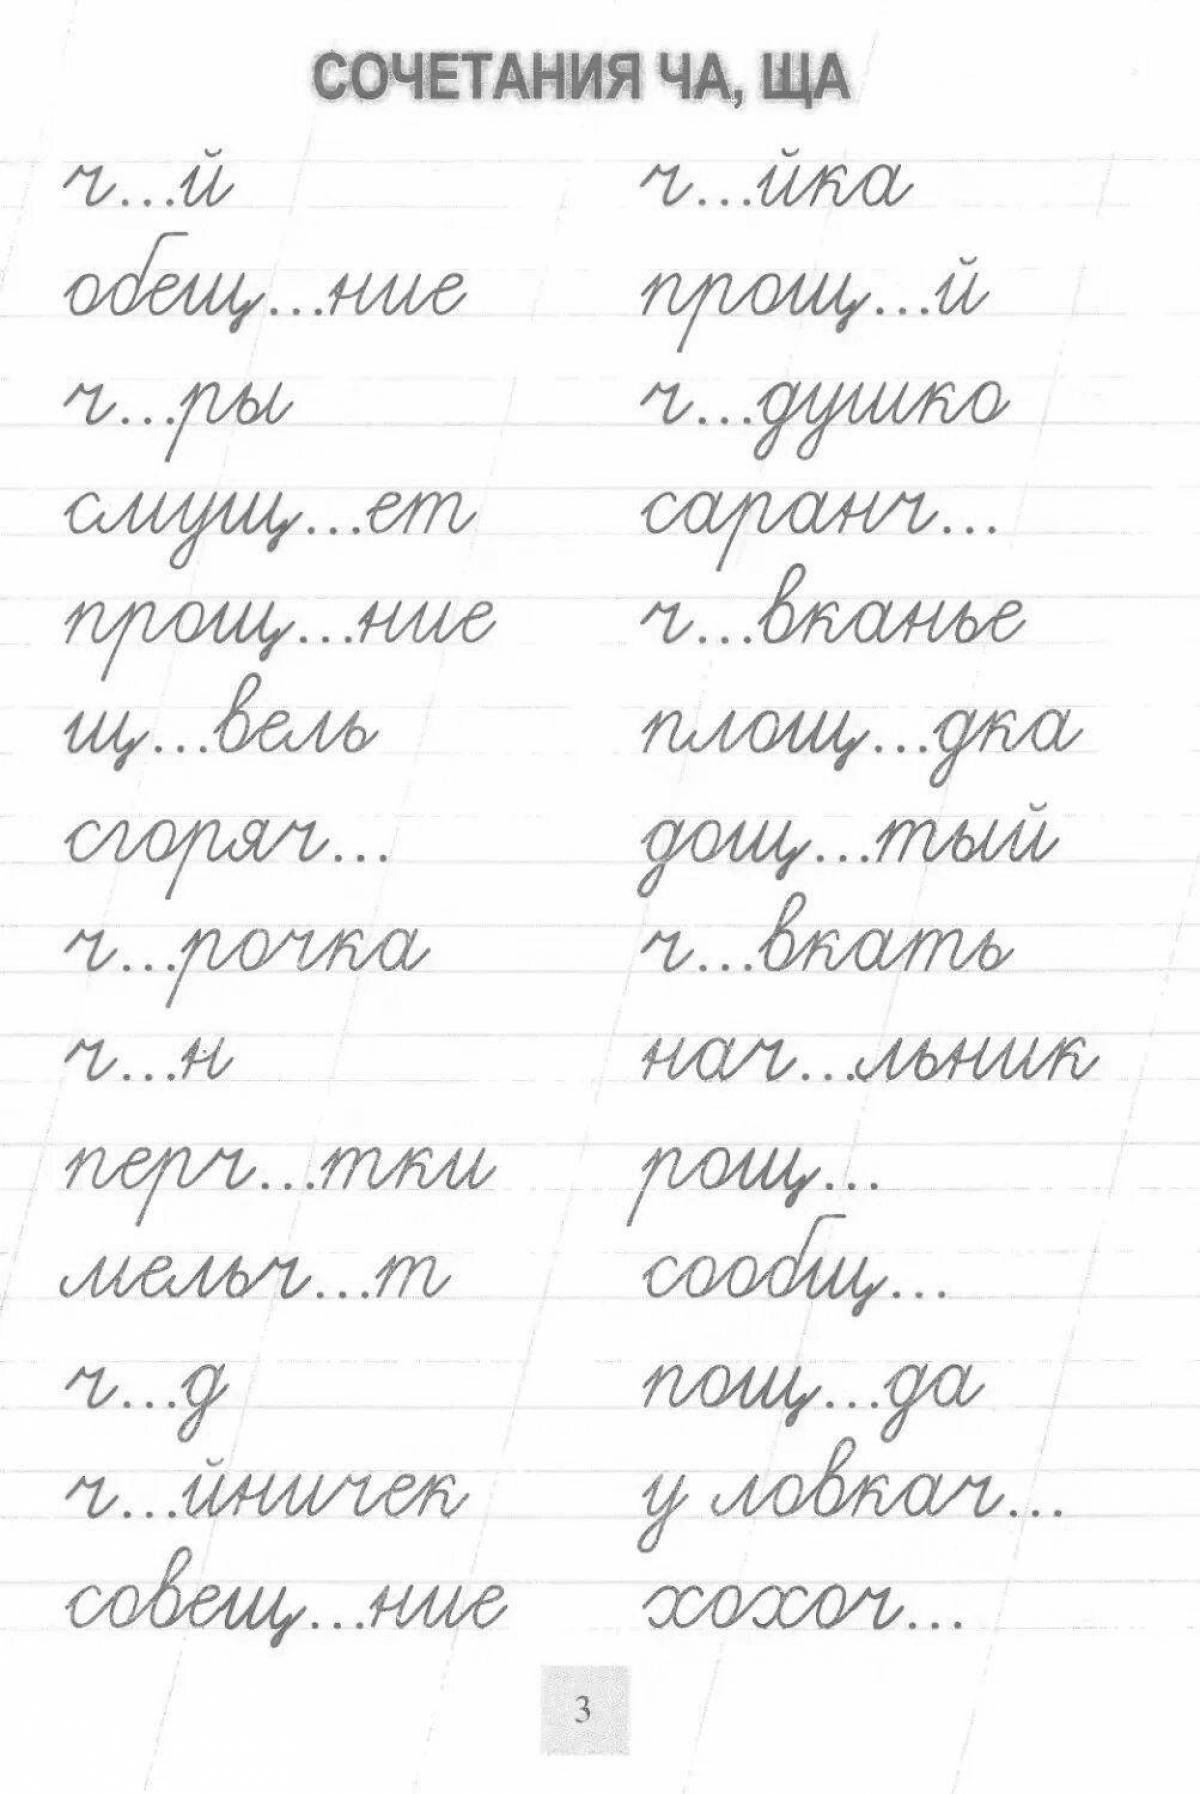 СОЧЕТАНИЯ ЧА, ЩА
ч...й ч...йка
обещ...ние прощ...й
ч...ры ч...душко
смущ...ет саранч...
прощ...ние ч...вканье
щ...вель площ...дка
сгоряч... дощ...тый
ч...рочка ч...вкать
ч...н нач...льник
перч...тки рощ...
мельч...т сообщ...
ч...д пощ...да
ч...йничек у ловкач...
совещ...ние хохоч...
3